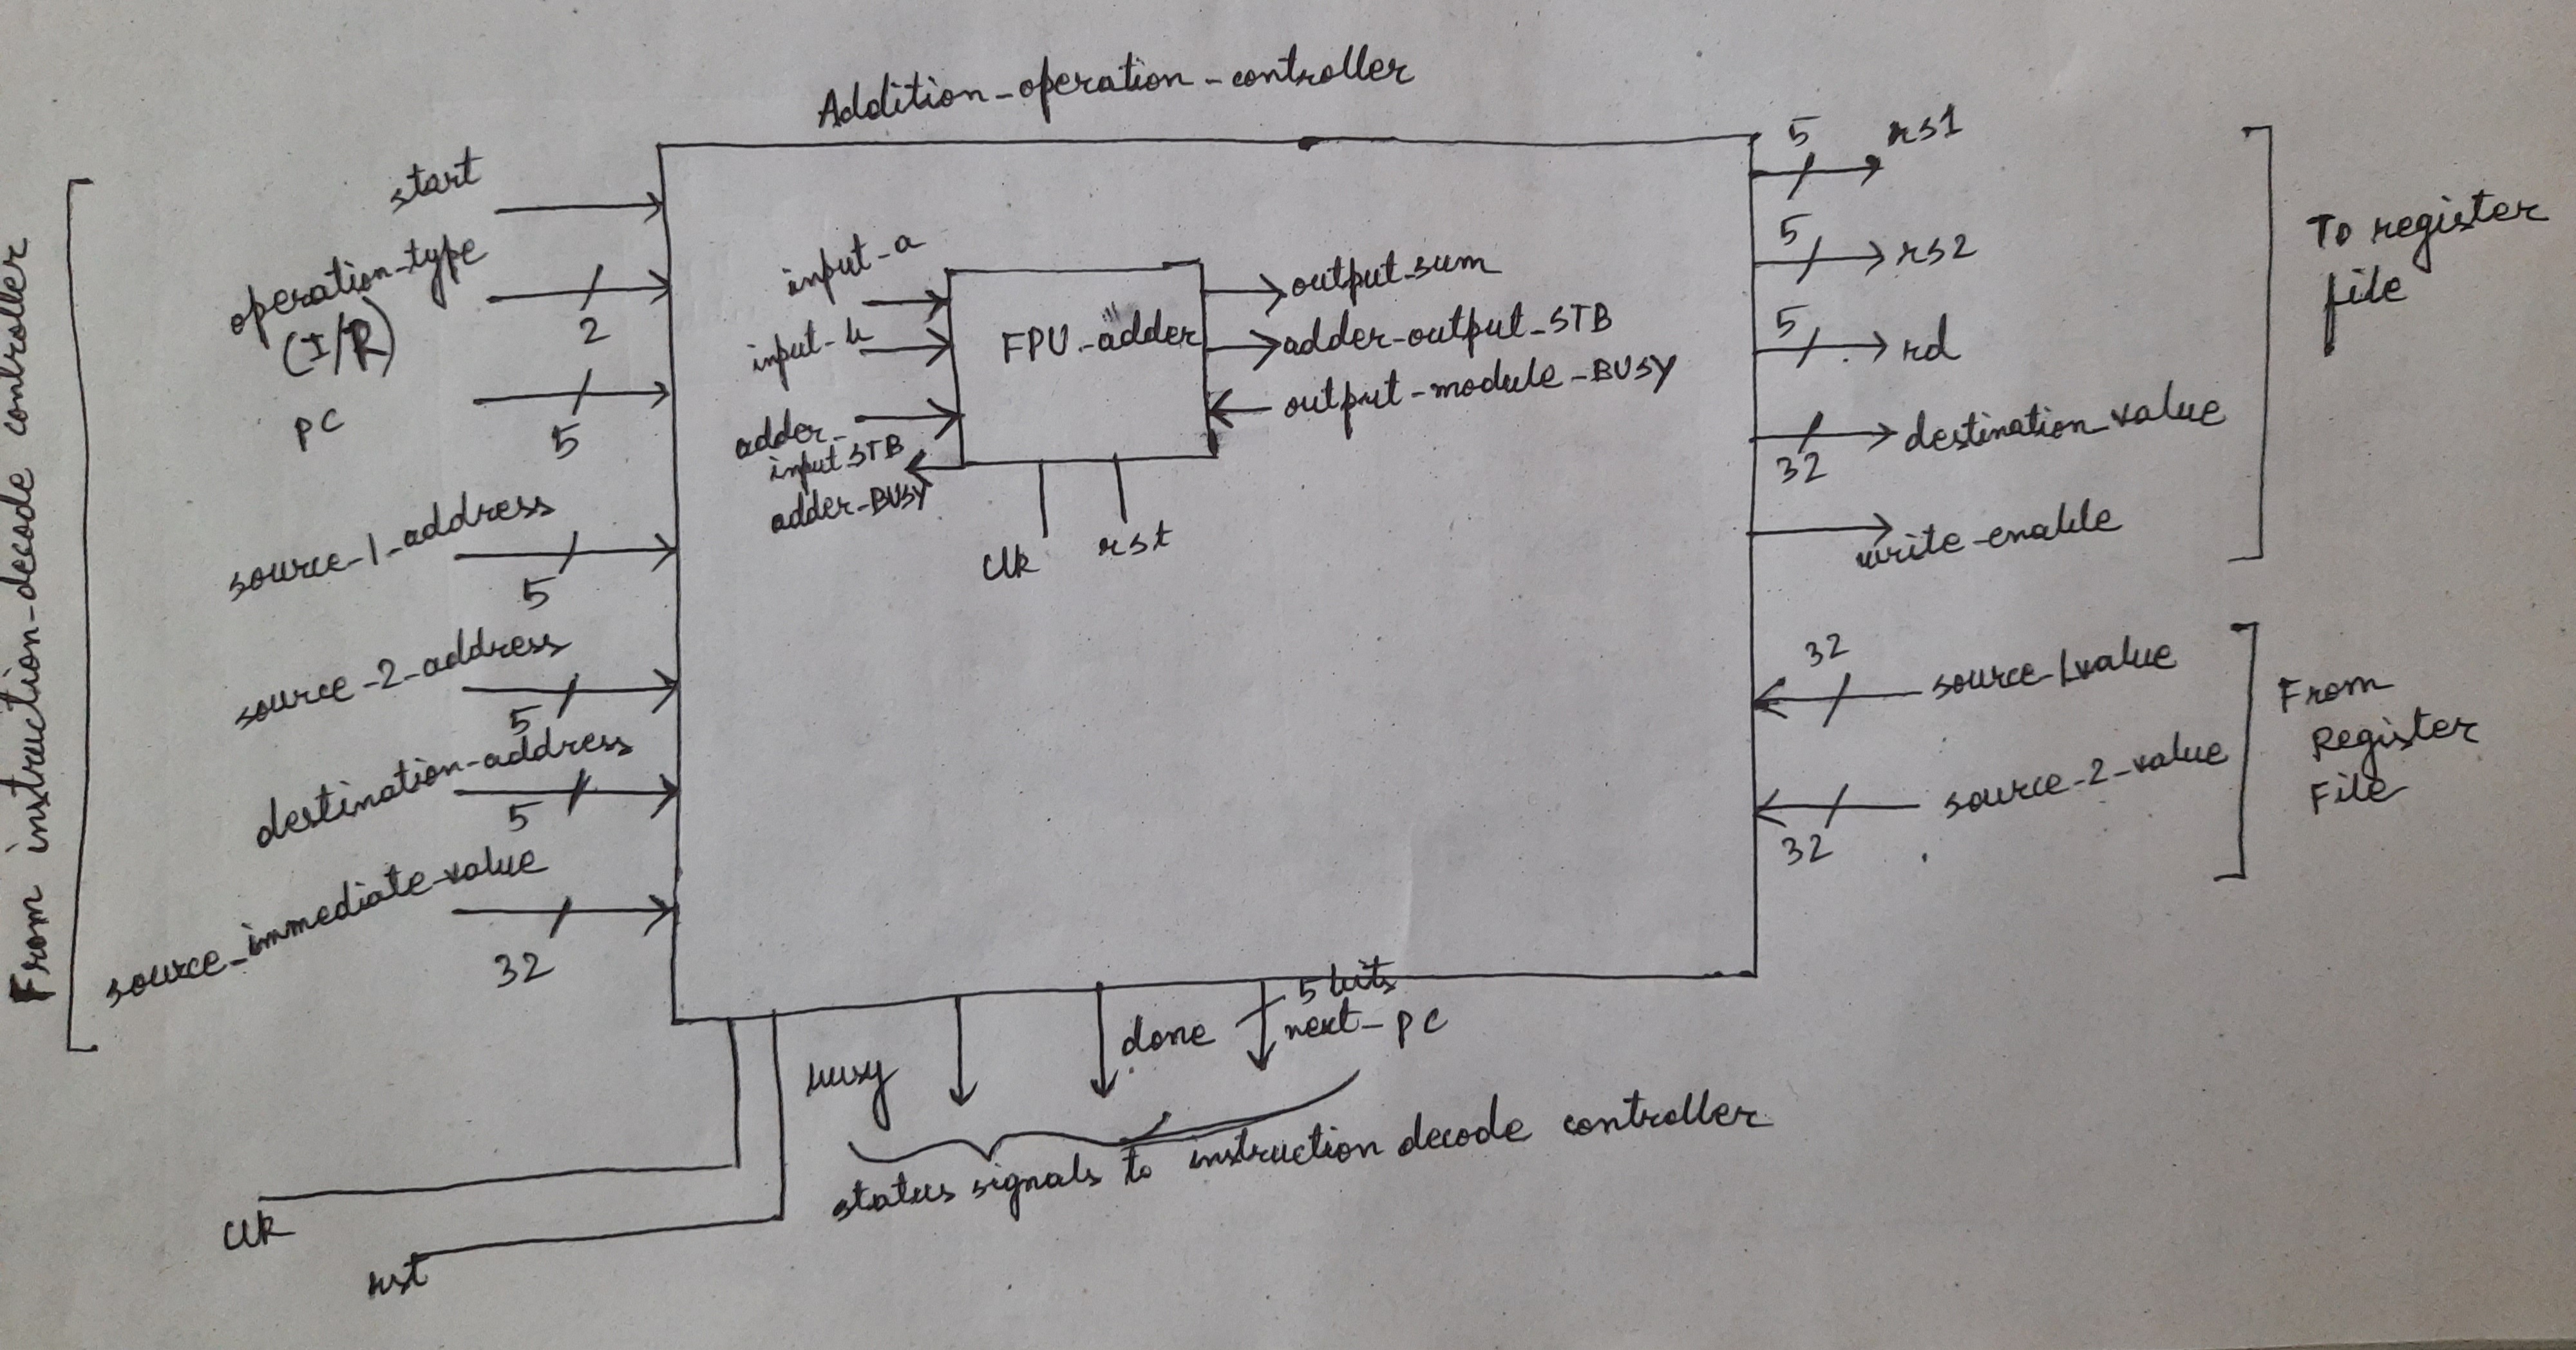 Addition-operation-controller
From instruction-decode controller
start
operation-type
(I/R)
2
PC
5
source-1-address
5
source-2-address
5
destination-address
5
source-immediate-value
32
input-a
input-b
adder-
input STB
adder-BUSY
FPU-adder
clk
rst
output-sum
adder-output-STB
output-module-BUSY
5
rs1
5
rs2
5
rd
32
destination-value
write-enable
To register
file
32
source-1value
source-2-value
32
From
Register
File
busy
done
5 bits
next-PC
status signals to instruction decode controller
clk
rst